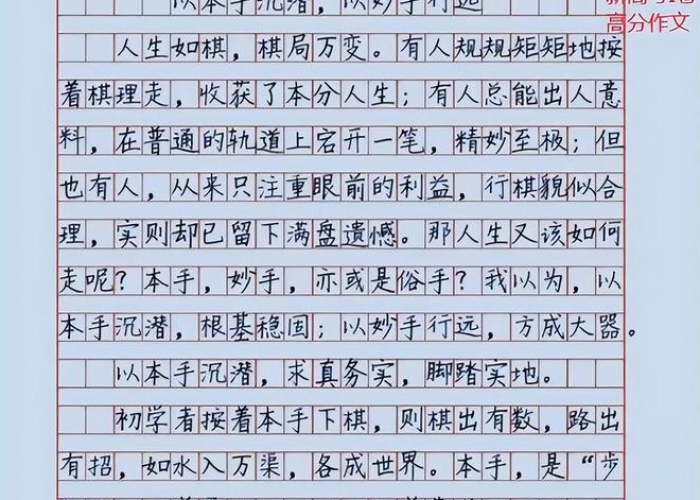 以本手沉潜，以妙手行远
高分作文
人生如棋，棋局万变。有人规规矩矩地按
着棋理走，收获了本分人生；有人总能出人意
料，在普通的轨道上宕开一笔，精妙至极；但
也有人，从来只注重眼前的利益，行棋貌似合
理，实则却已留下满盘遗憾。那人生又该如何
走呢？本手，妙手，亦或是俗手？我以为，以
本手沉潜，根基稳固；以妙手行远，方成大器。
以本手沉潜，求真务实，脚踏实地。
初学者按着本手下棋，则棋出有数，路出
有招，如水入万渠，各成世界。本手，是“步